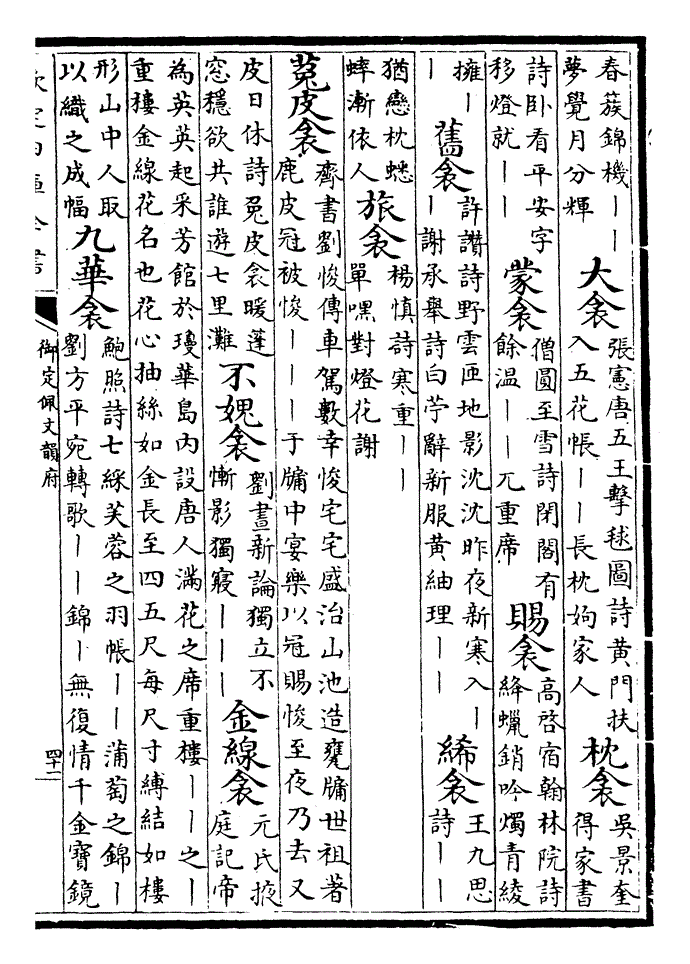 春蔟錦機丨丨
夢覺月分輝
大衾
張憲唐五王擊毬圖詩黃門扶
入五花帳丨丨長枕姁家人
枕衾
吳景奎
得家書
詩卧看平安字
移燈就丨丨
蒙衾
僧圓至雪詩閉閣有
餘温丨丨兀重席
賜衾
高啓宿翰林院詩
絳蠟銷吟燭青綾
擁丨
丨
舊衾
許讚詩野雲匝地影沈沈昨夜新寒入丨
丨謝承舉詩白苧辭新服黃紬理丨丨
絺衾
王九思
詩丨丨
猶戀枕蟋
蟀漸依人
旅衾
楊慎詩寒重丨丨
單嘿對燈花謝
菟皮衾
齊書劉悛傳車駕數幸悛宅宅盛治山池造甕牖世祖著
鹿皮冠被悛丨丨丨于牖中宴樂以冠賜悛至夜乃去又
皮日休詩兔皮衾暖蓬
窓穩欲共誰遊七里灘
不媿衾
劉晝新論獨立不
慚影獨寢丨丨丨
金線衾
元氏掖
庭記帝
為英英起采芳館於瓊華島内設唐人滿花之席重樓丨丨之丨
重樓金線花名也花心抽絲如金長至四五尺每尺寸縛結如樓
形山中人取
以織之成幅
九華衾
鮑照詩七綵芙蓉之羽帳丨丨蒲萄之錦丨
劉方平宛轉歌丨丨錦丨無復情千金寶鏡
欽定四庫全書
御定佩文韻府
四十一